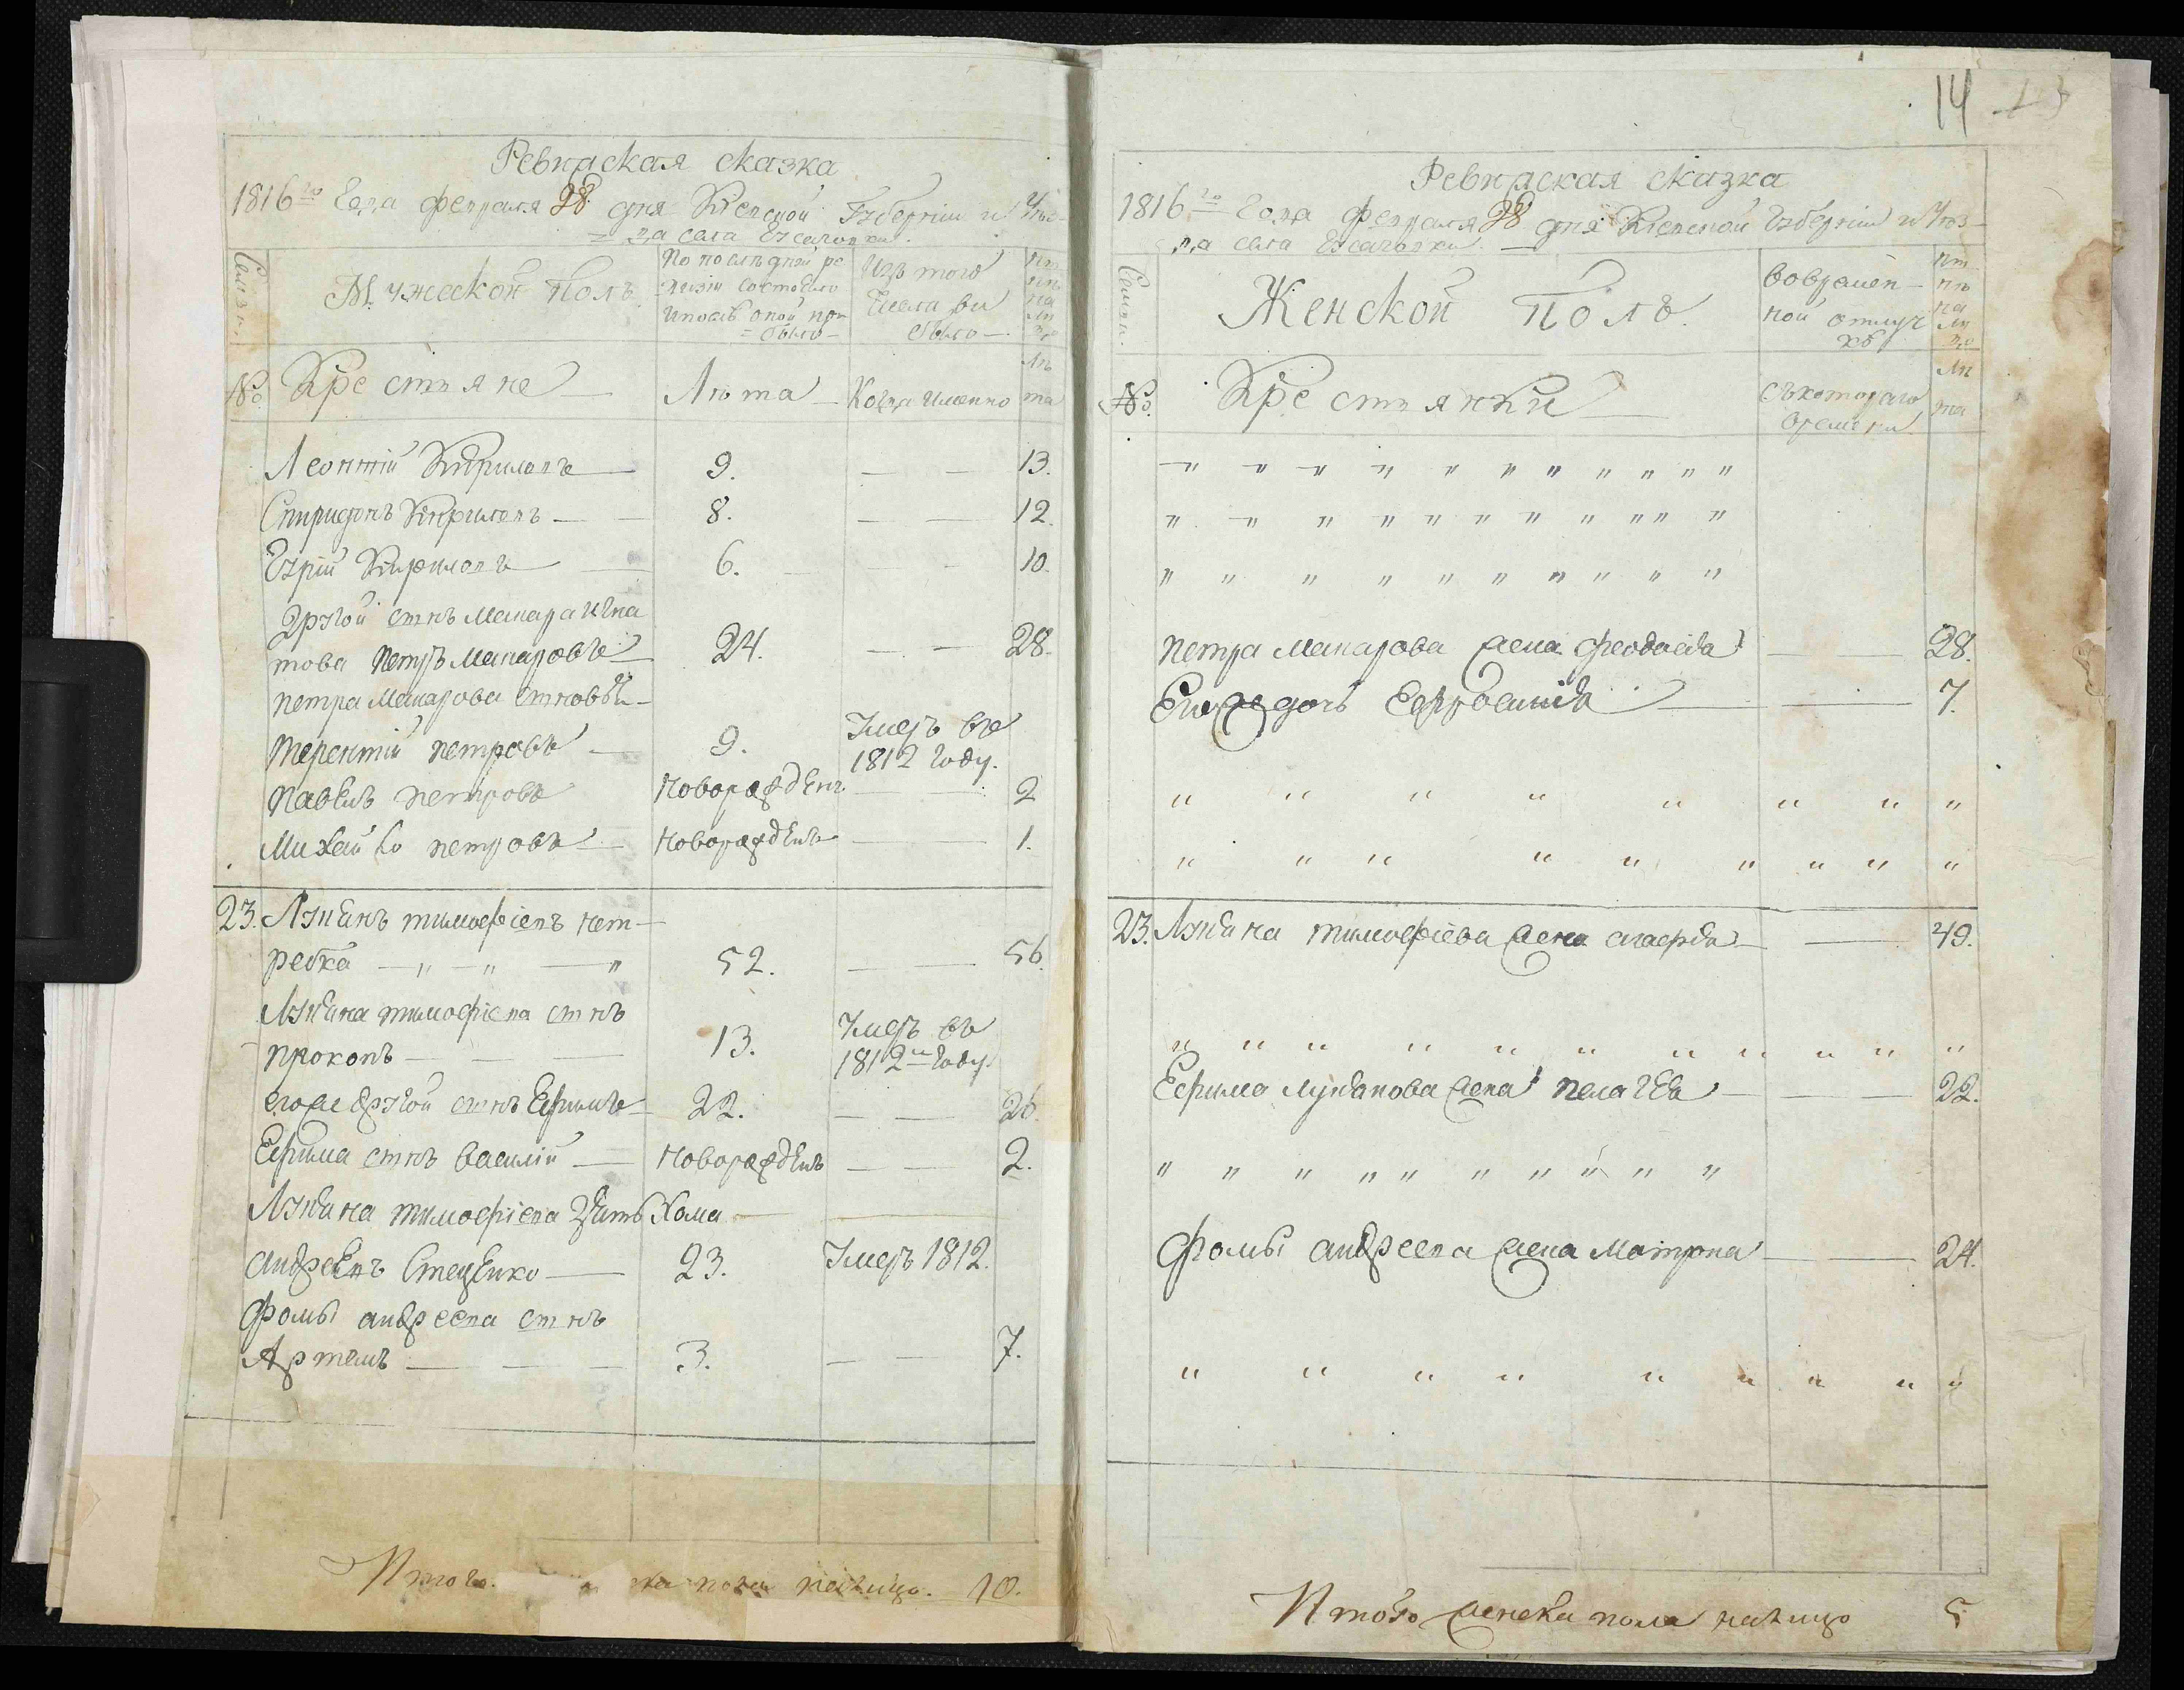 Ревизская сказка
1816го Года февраля 28 дня Киевской Губернiи и Уѣз-
= да села
Семьи.
Мужеской Полъ
По послѣдней ре
визiи состояло
и послѣ оной при
= было -
Изъ того
Числа вы
было -
Нынѣ
на
ли
цо
№
Крестьяне
Лѣта
Когда именно
Лѣ
та
Леонтiй Кириловъ 9. — — 13.
Спиридонъ Кириловъ — 8. — — 12.
Юрiй Кириловъ 6. — — 10.
Другой сынъ Макара Игна
това Петръ Макаровъ 24. — — 28.
Петра Макарова сыновья —
Терентiй Петровъ 9. Умеръ въ
1812 году.
Павелъ Петровъ Новорожденъ — 2
Михайло Петровъ Новорожденъ — 1.
23. Лукянъ Тимофiевъ нет-
ребка — „ — „ — „ 52. — — 56.
Лукяна Тимофiева сынъ
Прокопъ — — — 13. Умеръ въ
1812м году.
егоже другой сынъ Ефимъ 22. — — 26.
Ефима сынъ Василiй — Новорожденъ — — 2.
Лукяна Тимофiева зять Хома —
Андреевъ Стеценко — 23. Умеръ 1812.
Фомы Андреева сынъ
Артемъ — — — 3. — — 7.
Итого пола налицо. 10.
14
Ревизская сказка
1816го Года февраля 28 дня Киевской Губернiи и Уѣз-
да села
Семьи.
Женской Полъ.
Во времен-
ной отлуч
кѣ
Нынѣ
на
ли
цо
№
Крестьянки
Съ котораго
времени
Лѣ
та
„ „ „ „ „ „ „ „ „ „ „
„ „ „ „ „ „ „ „ „ „ „
„ „ „ „ „ „ „ „ „ „
Петра Макарова жена Феодосiя — — 28.
Его же дочь Ефросинiя — — 7.
„ „ „ „ „ „ „ „
„ „ „ „ „ „ „ „ „
23. Лукяна Тимофiева жена Агафiя — — 49.
„ „ „ „ „ „ „ „ „ „ „
Ефима Лукянова жена Пелагѣя — — — 22.
„ „ „ „ „ „ „ „ „ „
Фомы Андреева жена Матрона — — 24.
„ „ „ „ „ „ „ „ „
Итого женска пола налицо 5